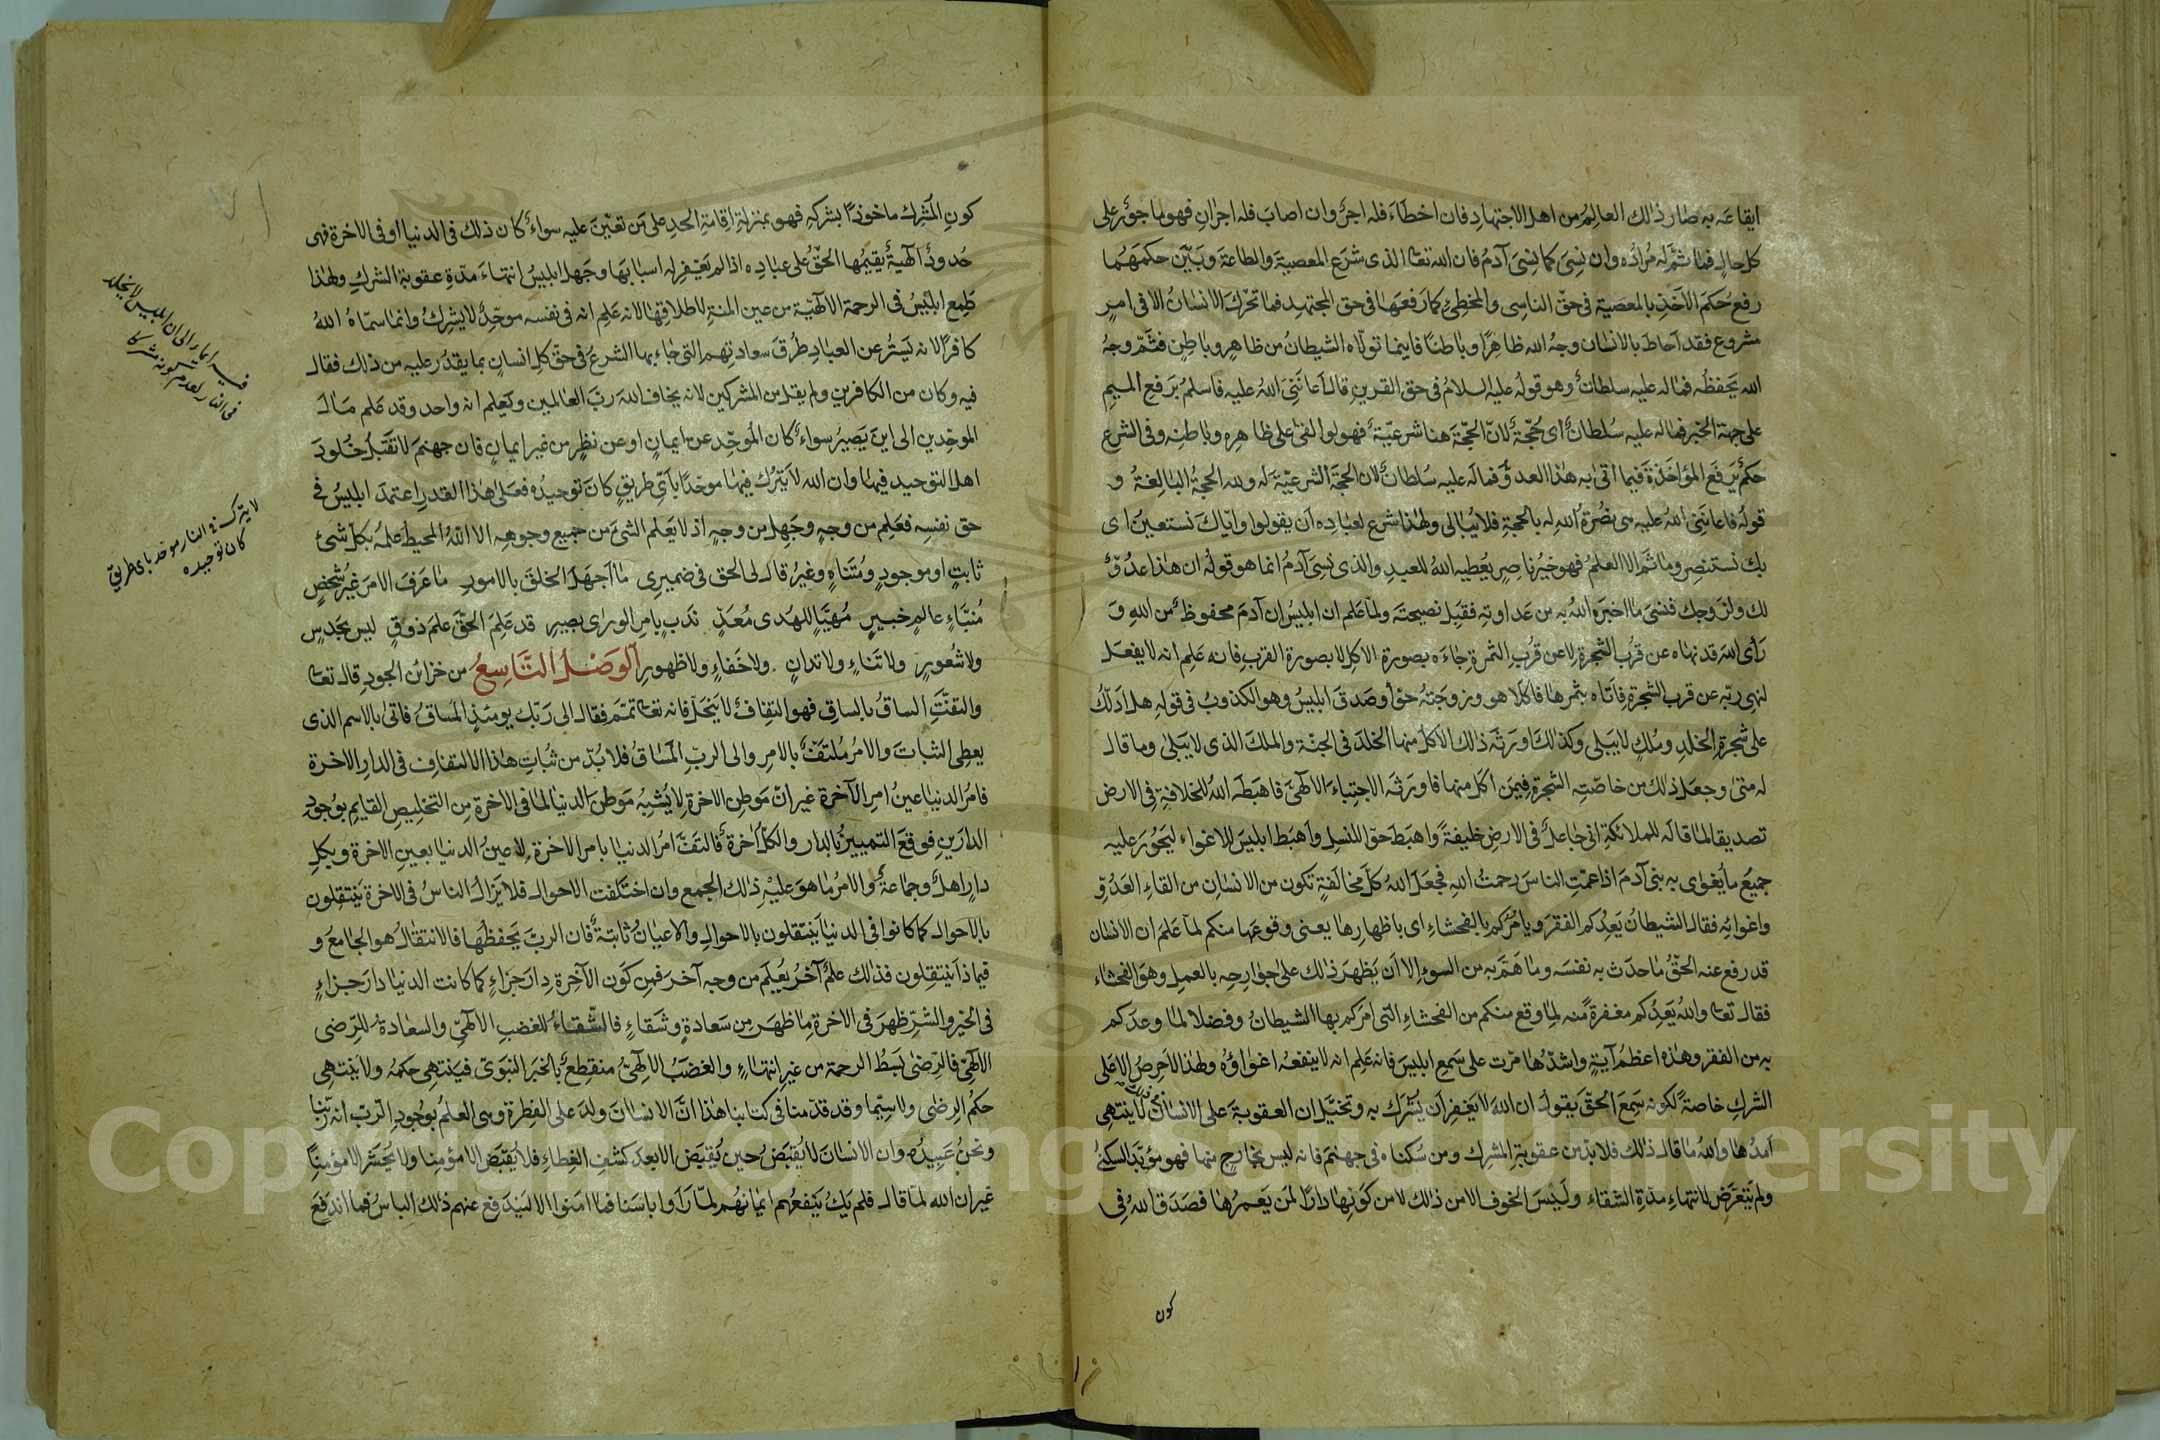 ايقاعه به صار ذلك العالم من اهل الاجتهاد فان اخطاء فله اجر وان اصاب فله اجران فهو ماجور على
كل حال فما ثم له مراده وان نسى كما نسى آدم فان الله تعا الذى شرع المعصية والطاعة وبين حكمهما
رفع حكم الاخذ بالمعصية فى حق الناسى والمخطئ كما رفعها فى حق المجتهد فما تحرك الانسان الا فى امر
مشروع فقد احاط بالانسان وجه الله ظاهرا وباطنا فاينما تولاه الشيطان من ظاهر وباطن فثم وجه
الله يحفظه فماله عليه سلطان وهو قوله عليه السلام فى حق القرين قال اعاننى الله عليه فاسلم برفع الميم
على جهة الخبر فماله عليه سلطان اى حجة لان الحجة هنا شرعية فهو لو القى على ظاهره وباطنه وفى الشرع
حكم يرفع المؤاخذة فيما اتى به هذا العدو فماله عليه سلطان لان الحجة الشرعية له ولله الحجة البالغة و
قوله فاعاننى الله عليه هى نصرة الله له بالحجة فلا يبالى ولهذا شرع لعباده ان يقولوا واياك نستعين اى
بك نستنصر وما ثم الا العلم فهو خير ناصر يعطيه الله للعبد والذى نسى آدم انما هو قوله ان هذا عدو
لك ولزوجك فنسى ما اخبره الله به من عداوته فقبل نصيحته ولما علم ان ابليس ان آدم محفوظ من الله و
راى الله قد نهاه عن قرب الشجرة لا عن قرب الثمرة جاءه بصورة الاكل لا بصورة القرب فانه علم انه لا يفعل
لنهى ربه عن قرب الشجرة فاتاه بثمرها فاكلا هو وزوجته حوا وصدق ابليس وهو الكذوب فى قوله هل ادلك
على شجرة الخلد وملك لا يبلى وكذلك اورثه ذلك الاكل منها الخلد فى الجنة والملك الذى لا يبلى وما قال
له متى وجعل ذلك من خاصية الشجرة فيمن اكل منها فاورثه الاجتباء الالهى فاهبطه الله للخلافة فى الارض
تصديقا لما قاله للملائكة انى جاعل فى الارض خليفة واهبط حوا للنسل واهبط ابليس للاغواء ليحور عليه
جميع ما يغوى به بنى آدم اذا عمت الناس رحمت الله فجعل الله كل مخالفة تكون من الانسان من القاء العدو
واغوائه فقال الشيطان يعدكم الفقر ويامركم بالفحشاء اى باظهارها يعنى وقوعها منكم لما علم ان الانسان
قد رفع عنه الحق ما حدث به نفسه وما هم به من السوء الا ان يظهر ذلك على جوارحه بالعمل وهو الفحشاء
فقال تعا والله يعدكم مغفرة منه لما وقع منكم من الفحشاء التى امركم بها الشيطان وفضلا لما وعدكم
به من الفقر وهذه اعظم آية واشدها مرت على سمع ابليس فانه علم انه لا ينفعه اغواؤه ولهذا لا حرص الا على
الشرك خاصة لكونه سمع الحق يقول ان الله لا يغفر ان يشرك به وتخيل ان العقوبة على الانسان لا ينتهى
امدها والله ما قال ذلك فلا بد من عقوبة المشرك ومن سكناه فى جهنم فانه ليس بخارج منها فهو مؤبد السكنى
ولم يتعرض لانتهاء مدة الشقاء وليس الخوف الا من ذلك لا من كونها دارا لمن يعمرها فصدق الله فى
كون
كون المشرك ماخوذا بشركه فهو بمنزلة اقامة الحد على من تعين عليه سواء كان ذلك فى الدنيا او فى الاخرة فهى
حدود آلهية يقيمها الحق على عباده اذا لم يغفر له اسبابها وجهل ابليس انتهاء مدة عقوبة الشرك ولهذا
طمع ابليس فى الرحمة الالهية من عين المنة لاطلاقها لانه علم انه فى نفسه موحد لا يشرك وانما سماه الله
كافرا لانه يستر عن العباد طرق سعادتهم التى جاء بها الشرع فى حق كل انسان بما يقدر عليه من ذلك فقال
فيه وكان من الكافرين ولم يقل من المشركين لانه يخاف الله رب العالمين ويعلم انه واحد وقد علم مال
الموحدين الى اين يصير سواء كان الموحد عن ايمان او عن نظر من غير ايمان فان جهنم لا تقبل خلود
اهل التوحيد فيها وان الله لا يترك فيها موحدا باى طريق كان توحيده فعلى هذا القدر اعتمد ابليس فى
حق نفسه فعلم من وجه وجهل من وجه اذ لا يعلم الشئ من جميع وجوهه الا الله المحيط علمه بكل شئ
ثابت او موجود ومتناه وغير قال لى الحق فى ضميرى ما اجهل الخلق بالامور ما عرف الامر غير شخص
منباء عالم خبير مهيا للهدى معد ندب بامر الورى بصير قد علم الحق علم ذوق ليس بحدس
ولا شعور ولا تناء ولا تدان ولا خفاء ولا ظهور الوصل التاسع من خزائن الجود قال تعا
والتفت الساق بالساق فهو التفاف لا ينحل فانه تعا تمم فقال الى ربك يومئذ المساق فاتى بالاسم الذى
يعطى الثبات والامر ملتف بالامر والى الرب المساق فلا بد من ثبات هذا الالتفاف فى الدار الاخرة
فامر الدنيا عين امر الآخرة غير ان موطن الاخرة لا يشبه موطن الدنيا لما فى الاخرة من التخليص القايم بوجود
الدارين فوقع التمييز بالدار والكل آخرة فالتف امر الدنيا بامر الاخرة لا عين الدنيا بعين الاخرة وبكل
دار اهل وجماعة والامر ما هو عليه ذلك الجمع وان اختلفت الاحوال فلا يزال الناس فى الاخرة ينتقلون
بالاحوال كما كانوا فى الدنيا ينتقلون بالاحوال والاعيان ثابتة فان الرب يحفظها فالانتقال هو الجامع و
فيما ذا ينتقلون فذلك علم آخر يعلم من وجه آخر فمن كون الآخرة دار جزاء كما كانت الدنيا دار جزاء
فى الخير والشر ظهر فى الاخرة ما ظهر من سعادة وشقاء فالشقاء للغضب الالهى والسعادة للرضى
الالهى فالرضى بسط الرحمة من غير انتهاء والغضب الالهى منقطع بالخبر النبوى فينتهى حكمه ولا ينتهى
حكم الرضى ولا سيما وقد قدمنا فى كتابنا هذا ان الانسان ولد على الفطرة وهى العلم بوجود الرب انه ربنا
ونحن عبيده وان الانسان لا يقبض حين يقبض الا بعد كشف الغطاء فلا يقبض الا مؤمنا ولا يحشر الا مؤمنا
غير ان الله لما قال فلم يك ينفعهم ايمانهم لما راوا باسنا فما امنوا الا ليندفع عنهم ذلك الباس فما اندفع
فيه ايما الى ان ابليس لا يخلد
فى النار لعدم كونه مشركا
لا يترك فى النار موحد باى طريق
كان توحيده
Copyright © King Saud University